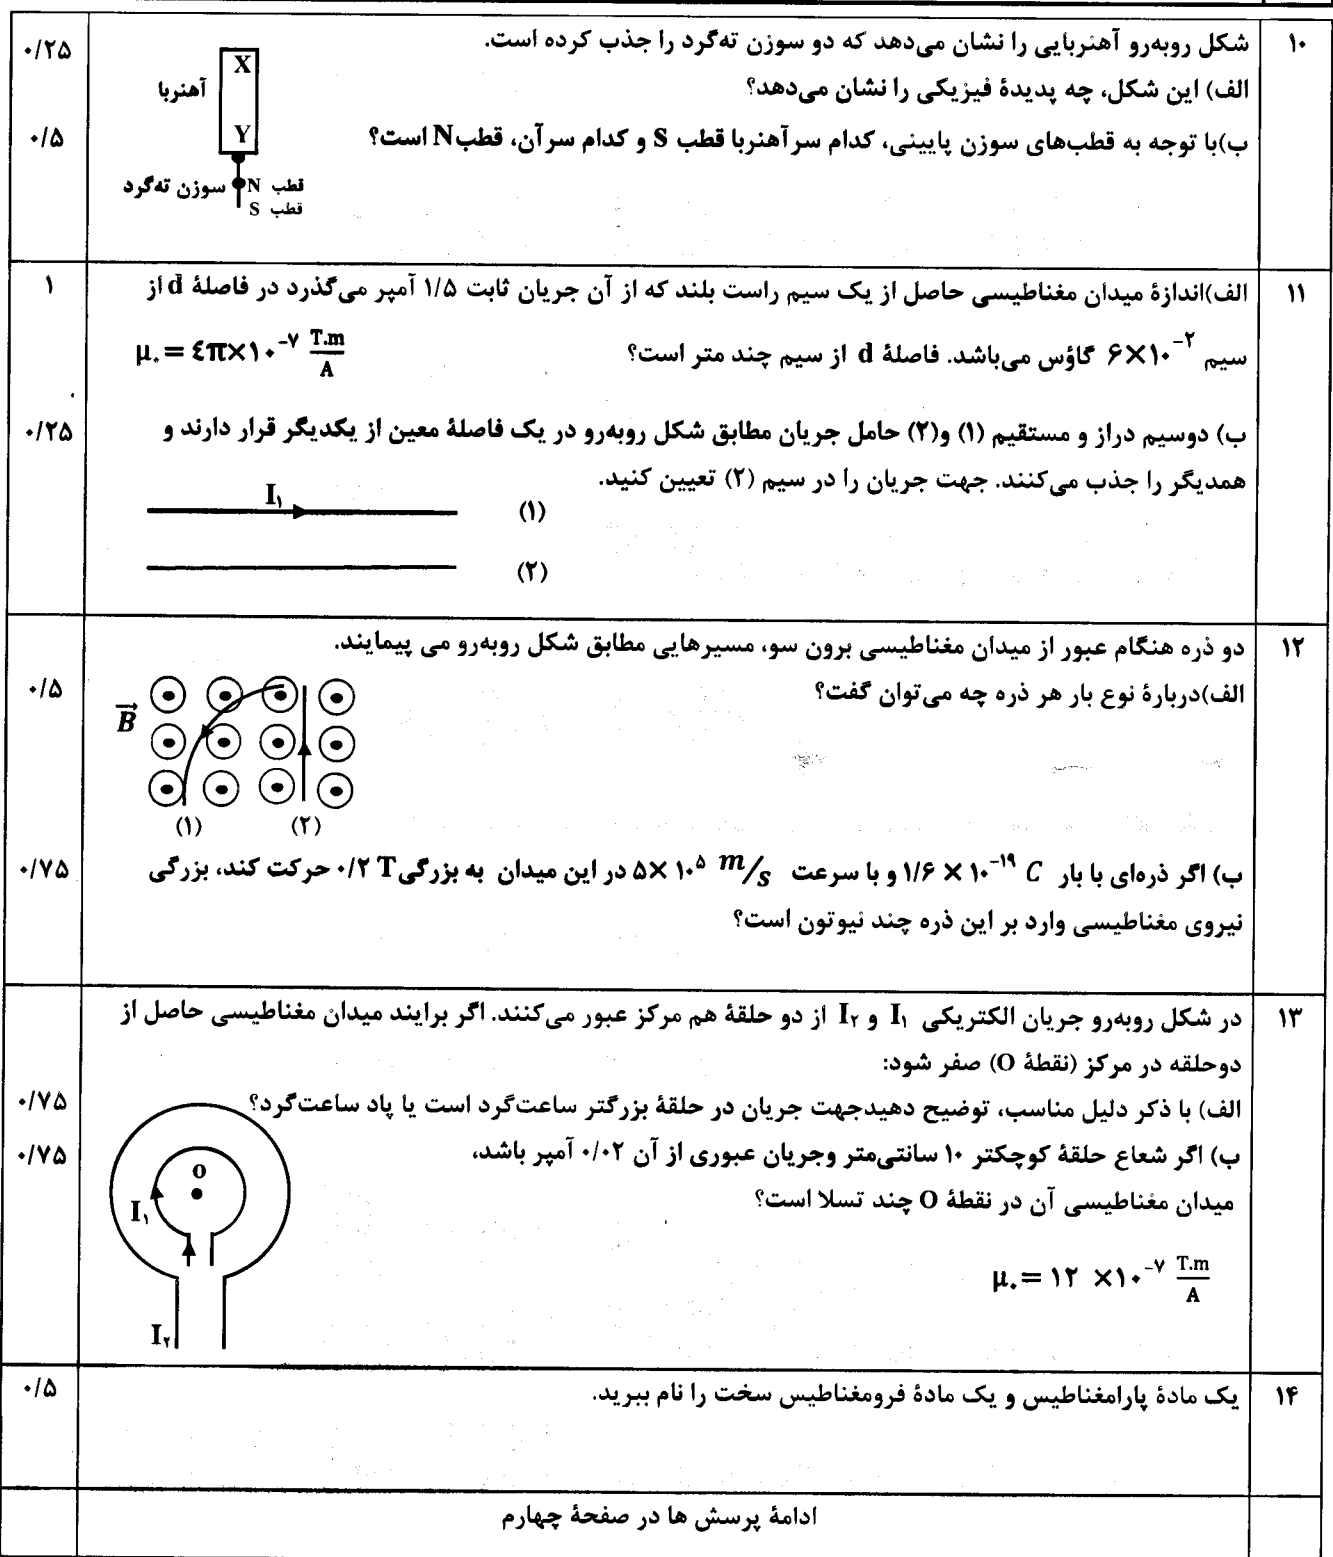 ۱۰
شکل روبه‌رو آهنربایی را نشان می‌دهد که دو سوزن ته‌گرد را جذب کرده است.
۰/۲۵
الف) این شکل، چه پدیدهٔ فیزیکی را نشان می‌دهد؟
ب)با توجه به قطب‌های سوزن پایینی، کدام سرآهنربا قطب S و کدام سرآن، قطبN است؟
۰/۵
X
آهنربا
Y
قطب N
سوزن ته‌گرد
قطب S
۱۱
الف)اندازهٔ میدان مغناطیسی حاصل از یک سیم راست بلند که از آن جریان ثابت ۱/۵ آمپر می‌گذرد در فاصلهٔ d از
۱
سیم ۶×۱۰⁻² گاؤس می‌باشد. فاصلهٔ d از سیم چند متر است؟ μ۰ = ٤π×۱۰⁻⁷ T.m/A
ب) دوسیم دراز و مستقیم (۱) و(۲) حامل جریان مطابق شکل روبه‌رو در یک فاصلهٔ معین از یکدیگر قرار دارند و
۰/۲۵
همدیگر را جذب می‌کنند. جهت جریان را در سیم (۲) تعیین کنید.
I۱
(۱)
(۲)
۱۲
دو ذره هنگام عبور از میدان مغناطیسی برون سو، مسیرهایی مطابق شکل روبه‌رو می پیمایند.
الف)دربارهٔ نوع بار هر ذره چه می‌توان گفت؟
۰/۵
B
(۱) (۲)
ب) اگر ذره‌ای با بار ۱/۶ × ۱۰⁻¹⁹ C و با سرعت ۵× ۱۰⁵ m/s در این میدان به بزرگی۰/۲ T حرکت کند، بزرگی
۰/۷۵
نیروی مغناطیسی وارد بر این ذره چند نیوتون است؟
۱۳
در شکل روبه‌رو جریان الکتریکی I۱ و I۲ از دو حلقهٔ هم مرکز عبور می‌کنند. اگر برایند میدان مغناطیسی حاصل از
دوحلقه در مرکز (نقطهٔ O) صفر شود:
الف) با ذکر دلیل مناسب، توضیح دهیدجهت جریان در حلقهٔ بزرگتر ساعت‌گرد است یا پاد ساعت‌گرد؟
۰/۷۵
ب) اگر شعاع حلقهٔ کوچکتر ۱۰ سانتی‌متر وجریان عبوری از آن ۰/۰۲ آمپر باشد،
۰/۷۵
میدان مغناطیسی آن در نقطهٔ O چند تسلا است؟
μ۰ = ۱۲ ×۱۰⁻⁷ T.m/A
O
I۱
I۲
۱۴
یک مادهٔ پارامغناطیس و یک مادهٔ فرومغناطیس سخت را نام ببرید.
۰/۵
ادامهٔ پرسش ها در صفحهٔ چهارم